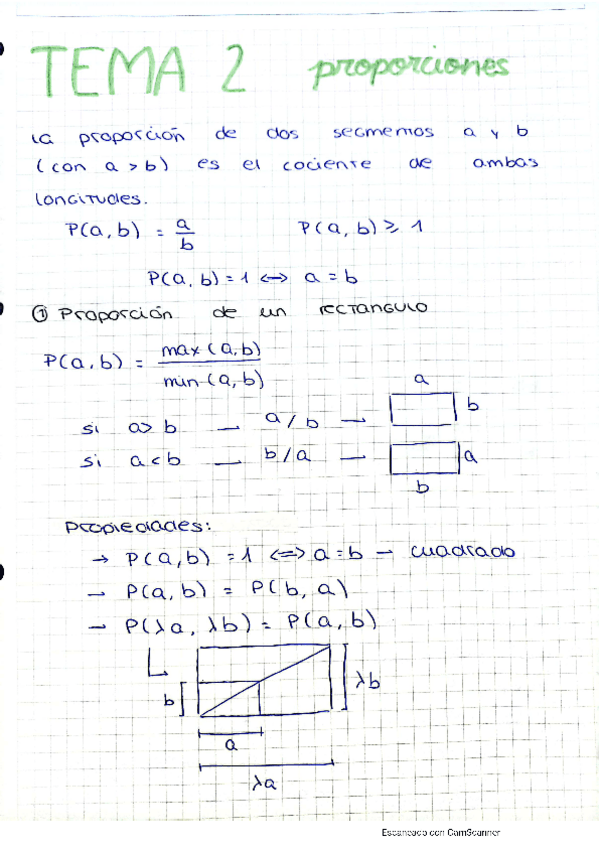 TEMA 2 proporciones
La proporción de dos segmentos a y b
(con a > b) es el cociente de ambas
longitudes.
P(a, b) = a/b P(a, b) ≥ 1
P(a, b) = 1 ⟷ a = b
① Proporción de un rectangulo
P(a, b) = max (a, b) / min (a, b)
si a > b — a / b — a b
si a < b — b / a — a b
Propiedades:
→ P(a, b) = 1 ⟺ a = b — cuadrado
— P(a, b) = P(b, a)
— P(λa, λb) = P(a, b)
b λb
a
λa
Escaneado con CamScanner